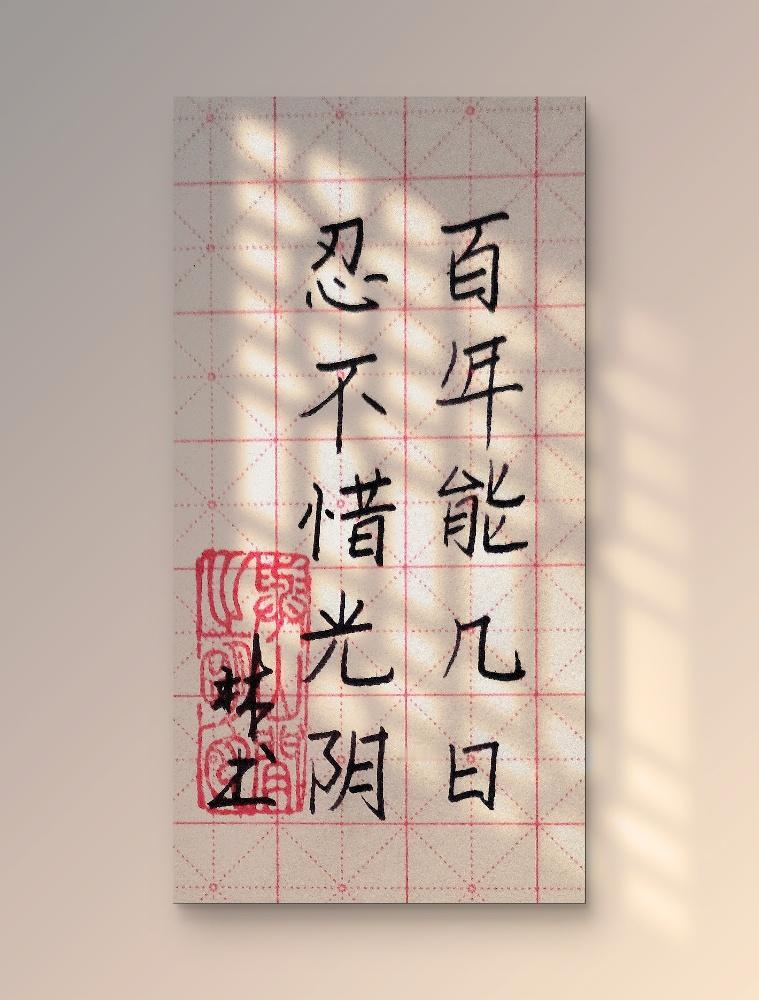 百年能几日
忍不惜光阴
林书